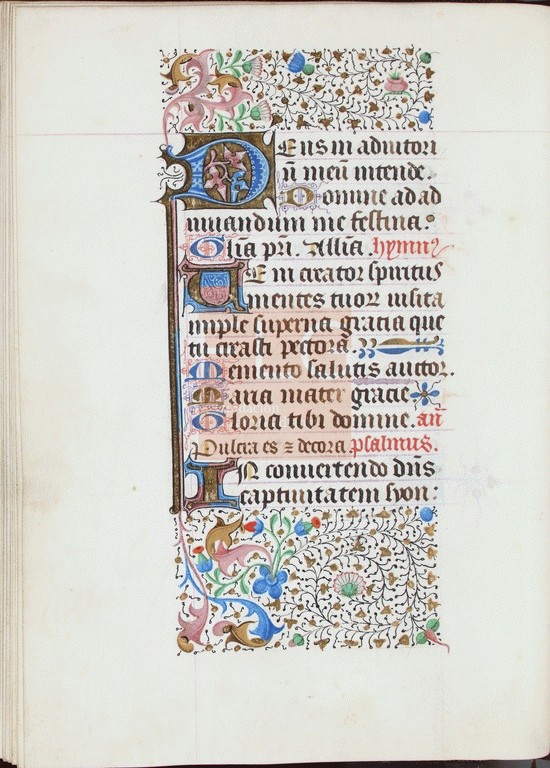 Deus in adiutori
ū meū intende.
Domine ad ad
iuuandum me festina.
Glīa pr̄i. Allīa. hymnꝰ
Ueni creator spiritus
mentes tuoꝝ uisita
imple superna gracia que
tu creasti pectora.
Memento salutis auctor.
Maria mater gracie
Gloria tibi domine. an̄
Pulcra es ⁊ decora psalmus.
IN conuertendo dn̄s
captiuitatem syon: